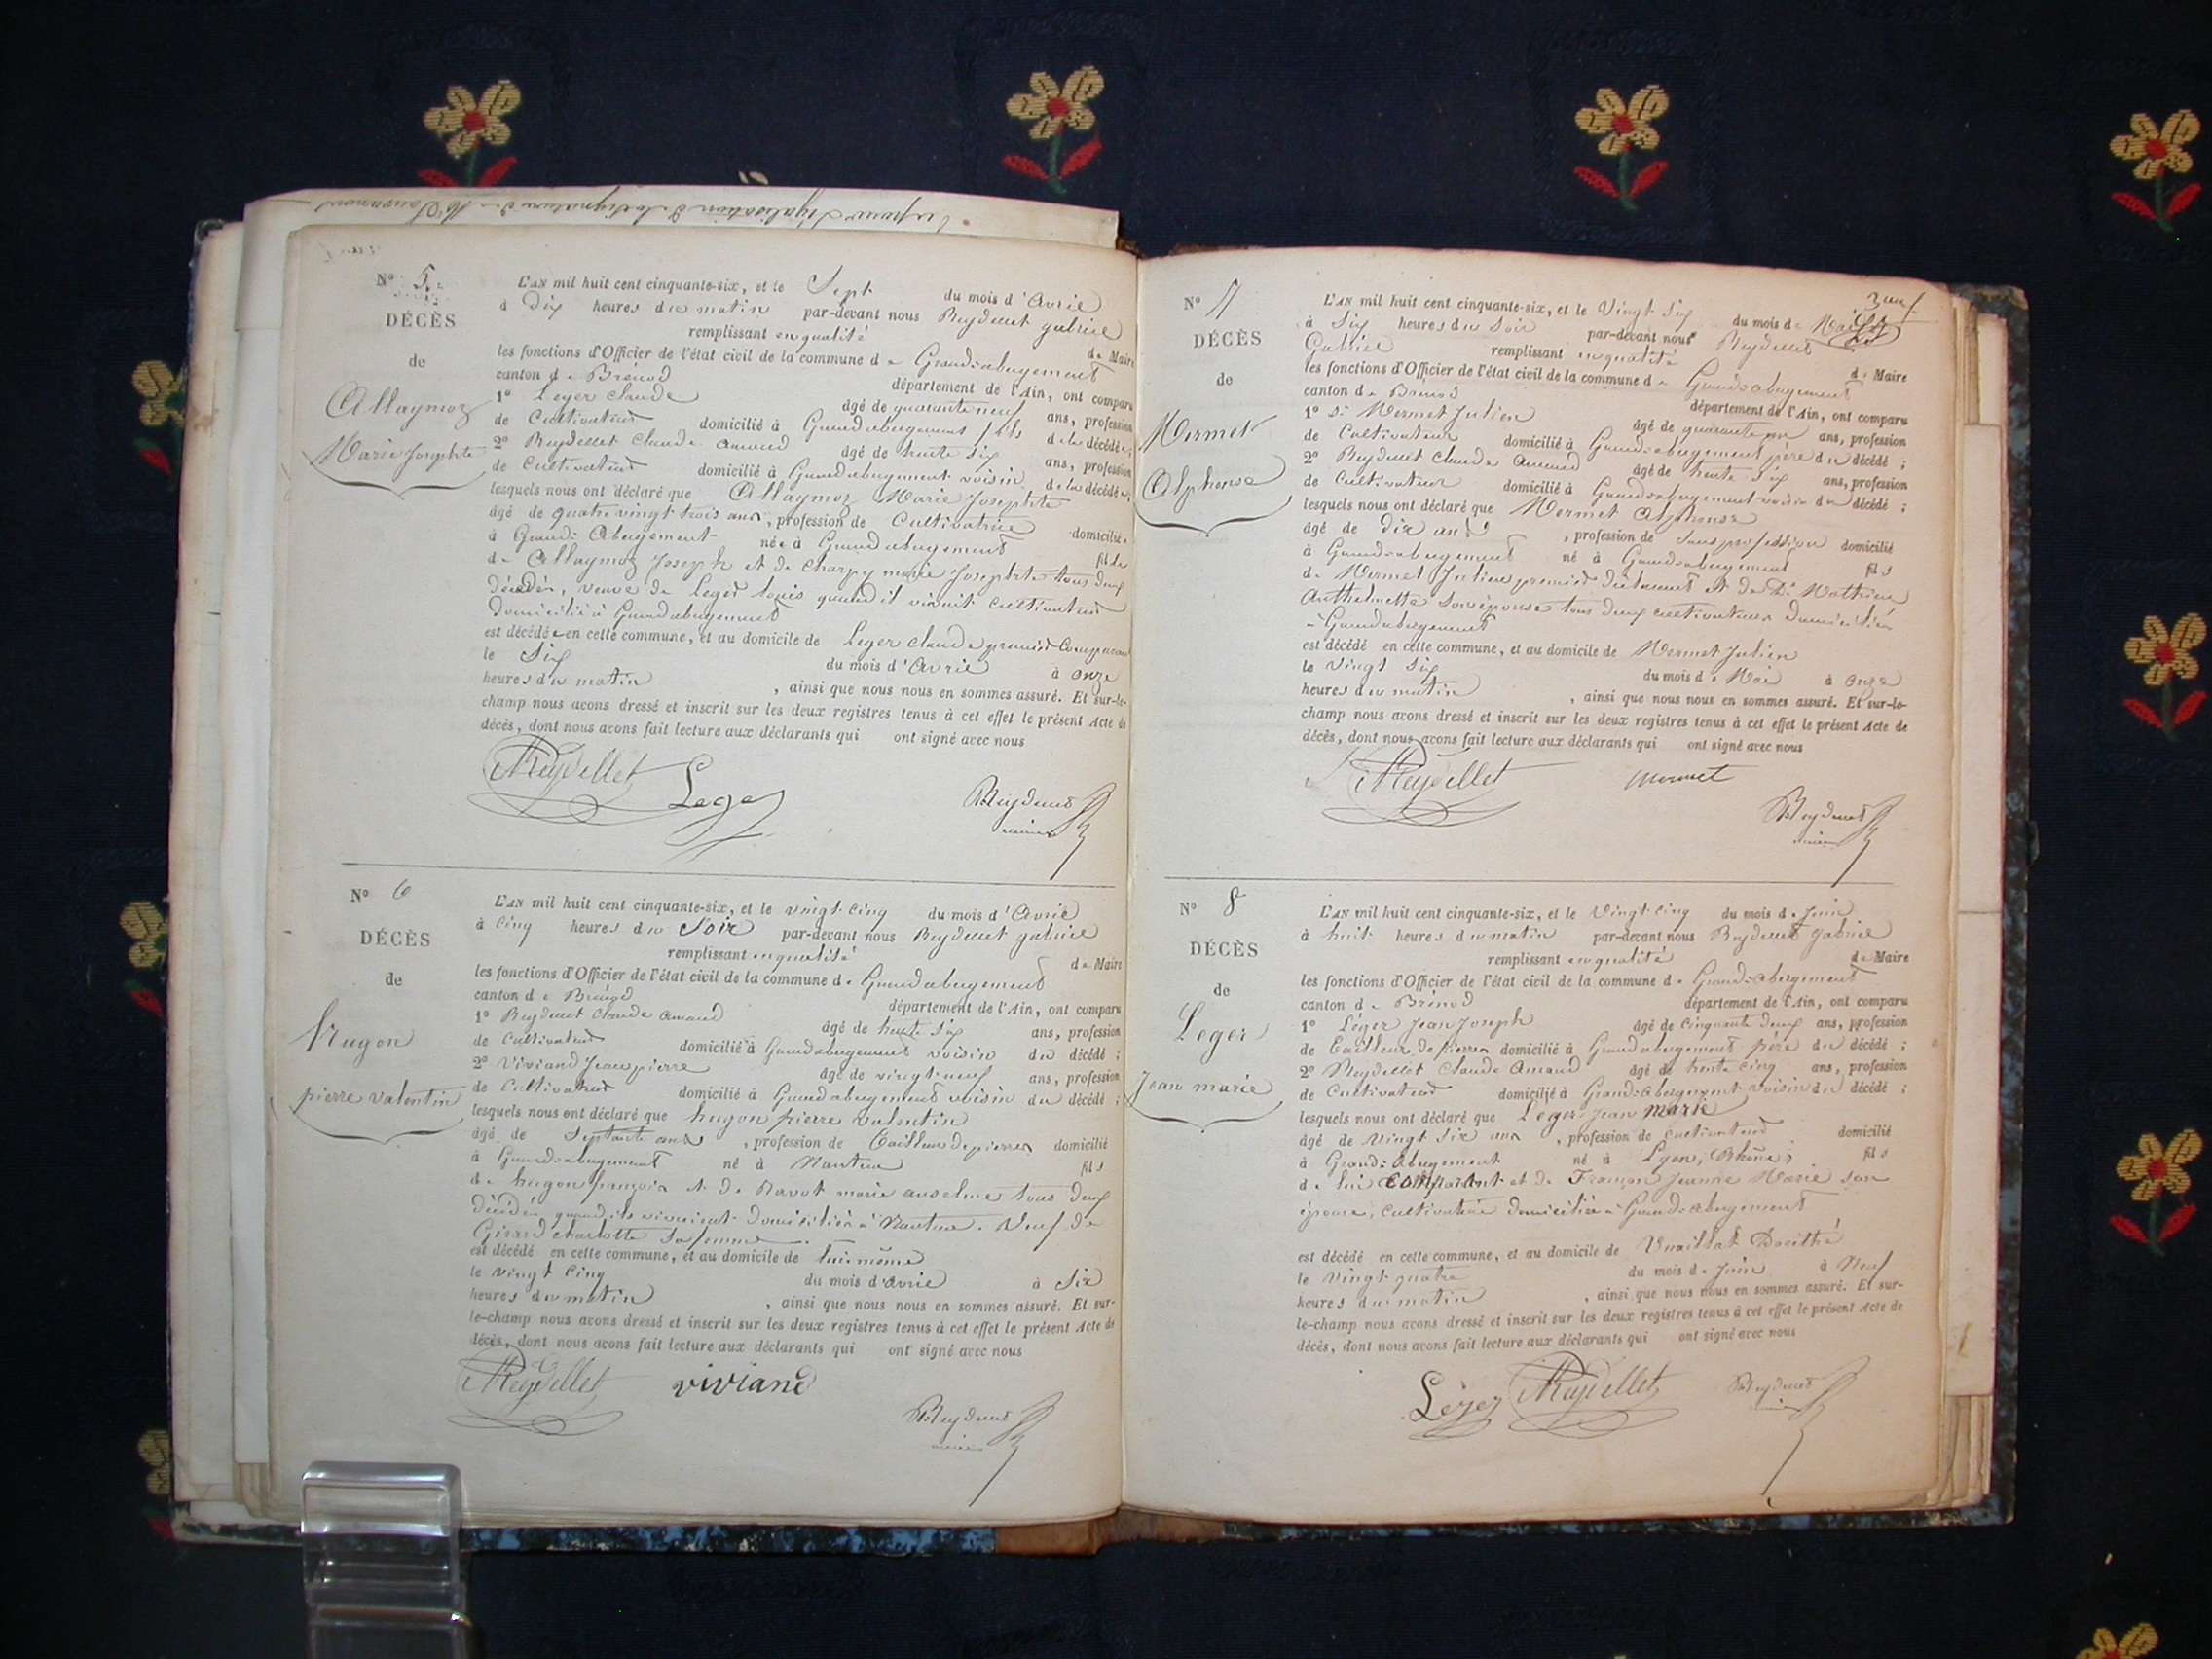 Nº 5
DÉCÈS
de
Allaymoz
Marie Josephte
L'AN mil huit cent cinquante-six, et le Sept du mois d'Avril
à Dix heures du matin par-devant nous Reydellet gabriel
remplissant en qualité de Maire
les fonctions d'Officier de l'état civil de la commune de Grand-abergement
canton de Brénod département de l'Ain, ont comparu
1º Leger Claude âgé de quarante neuf ans, profession
de Cultivateur domicilié à Grand abergement fils de la décédée;
2º Reydellet Claude Amand âgé de trente six ans, profession
de Cultivateur domicilié à Grand abergement voisin de la décédée;
lesquels nous ont déclaré que Allaymoz Marie Josephte
âgé de quatre vingt trois ans, profession de Cultivatrice domiciliée
à Grand Abergement née à Grand abergement fille
de Allaymoz Joseph et de Charpy marie Josephte tous deux
décédés, veuve de Leger Louis quand il vivait cultivateur
domicilié à Grand abergement
est décédée en cette commune, et au domicile de Leger Claude premier Comparant
le Six du mois d'Avril à onze
heures du matin, ainsi que nous nous en sommes assuré. Et sur-le-
champ nous avons dressé et inscrit sur les deux registres tenus à cet effet le présent Acte de
décès, dont nous avons fait lecture aux déclarants qui ont signé avec nous
Reydellet Leger Reydellet
maire
Nº 6
DÉCÈS
de
hugon
pierre valentin
L'AN mil huit cent cinquante-six, et le vingt-cinq du mois d'Avril
à cinq heures du Soir par-devant nous Reydellet gabriel
remplissant en qualité de Maire
les fonctions d'Officier de l'état civil de la commune de Grand abergement
canton de Brénod département de l'Ain, ont comparu
1º Reydellet Claude Amand âgé de trente Six ans, profession
de Cultivateur domicilié à Grand abergement voisin du décédé;
2º Viviand Jean pierre âgé de vingt-neuf ans, profession
de Cultivateur domicilié à Grand abergement voisin du décédé;
lesquels nous ont déclaré que hugon pierre valentin
âgé de Septante ans, profession de Tailleur de pierres domicilié
à Grand-abergement né à Nantua fils
de hugon françois et de Ravot marie anselme tous deux
décédés quand ils vivaient domiciliés à Nantua. Veuf de
Girard Charlotte sa femme
est décédé en cette commune, et au domicile de lui-même
le vingt cinq du mois d'avril à Six
heures du matin, ainsi que nous nous en sommes assuré. Et sur-
le-champ nous avons dressé et inscrit sur les deux registres tenus à cet effet le présent Acte de
décès, dont nous avons fait lecture aux déclarants qui ont signé avec nous
Reydellet viviand
Reydellet
maire
Nº 7
DÉCÈS
de
Mermet
Alphonse
L'AN mil huit cent cinquante-six, et le Vingt Six du mois de Mai
à Six heures du Soir par-devant nous Reydellet
Gabriel remplissant en qualité de Maire
les fonctions d'Officier de l'état civil de la commune de Grand-abergement
canton de Brénod département de l'Ain, ont comparu
1º Mermet Julien âgé de quarante ans, profession
de Cultivateur domicilié à Grand-abergement père du décédé;
2º Reydellet Claude Amand âgé de trente Six ans, profession
de Cultivateur domicilié à Grand-abergement voisin du décédé;
lesquels nous ont déclaré que Mermet Alphonse
âgé de dix ans, profession de Sans profession domicilié
à Grand-abergement né à Grand-abergement fils
de Mermet Julien premier déclarant et de
Anthelmette Son épouse tous deux cultivateurs domiciliés
à Grand abergement
est décédé en cette commune, et au domicile de Mermet Julien
le vingt Six du mois de Mai à onze
heures du matin, ainsi que nous nous en sommes assuré. Et sur-le-
champ nous avons dressé et inscrit sur les deux registres tenus à cet effet le présent Acte de
décès, dont nous avons fait lecture aux déclarants qui ont signé avec nous
Reydellet mermet
Reydellet
maire
Nº 8
DÉCÈS
de
Leger
Jean marie
L'AN mil huit cent cinquante-six, et le Vingt-cinq du mois de Juin
à huit heures du matin par-devant nous Reydellet gabriel
remplissant en qualité de Maire
les fonctions d'Officier de l'état civil de la commune de Grand-abergement
canton de Brénod département de l'Ain, ont comparu
1º Léger Jean Joseph âgé de Cinquante deux ans, profession
de Tailleur de pierres domicilié à Grand abergement père du décédé;
2º Reydellet Claude Amand âgé de trente cinq ans, profession
de Cultivateur domicilié à Grand-Abergement voisin du décédé;
lesquels nous ont déclaré que Leger Jean Marie
âgé de vingt six ans, profession de cultivateur domicilié
à Grand-Abergement né à Lyon, (Rhône) fils
de lui comparant et de Françon Jeanne Marie son
épouse, cultivatrice domiciliée à Grand-abergement
est décédé en cette commune, et au domicile de Vuaillat Docithé
le Vingt-quatre du mois de Juin à Neuf
heures du matin, ainsi que nous nous en sommes assuré. Et sur-
le-champ nous avons dressé et inscrit sur les deux registres tenus à cet effet le présent Acte de
décès, dont nous avons fait lecture aux déclarants qui ont signé avec nous
Léger Reydellet Reydellet